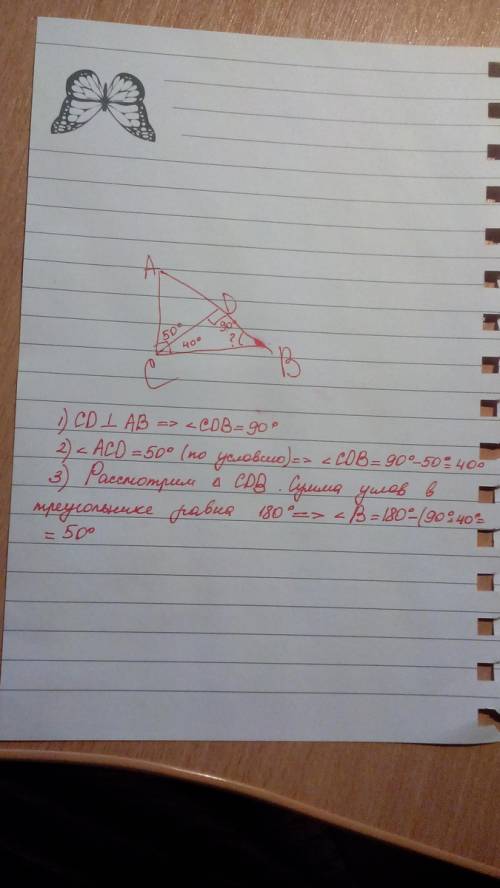 A
D
50°
90°
40°
?
C
B
1) CD ⊥ AB => <CDB = 90°
2) < ACD = 50° (по условию) => < CDB = 90° - 50° = 40°
3) Рассмотрим △ CDB. Сумма углов в
треугольнике равна 180° => < B = 180° - (90° = 40° =
= 50°